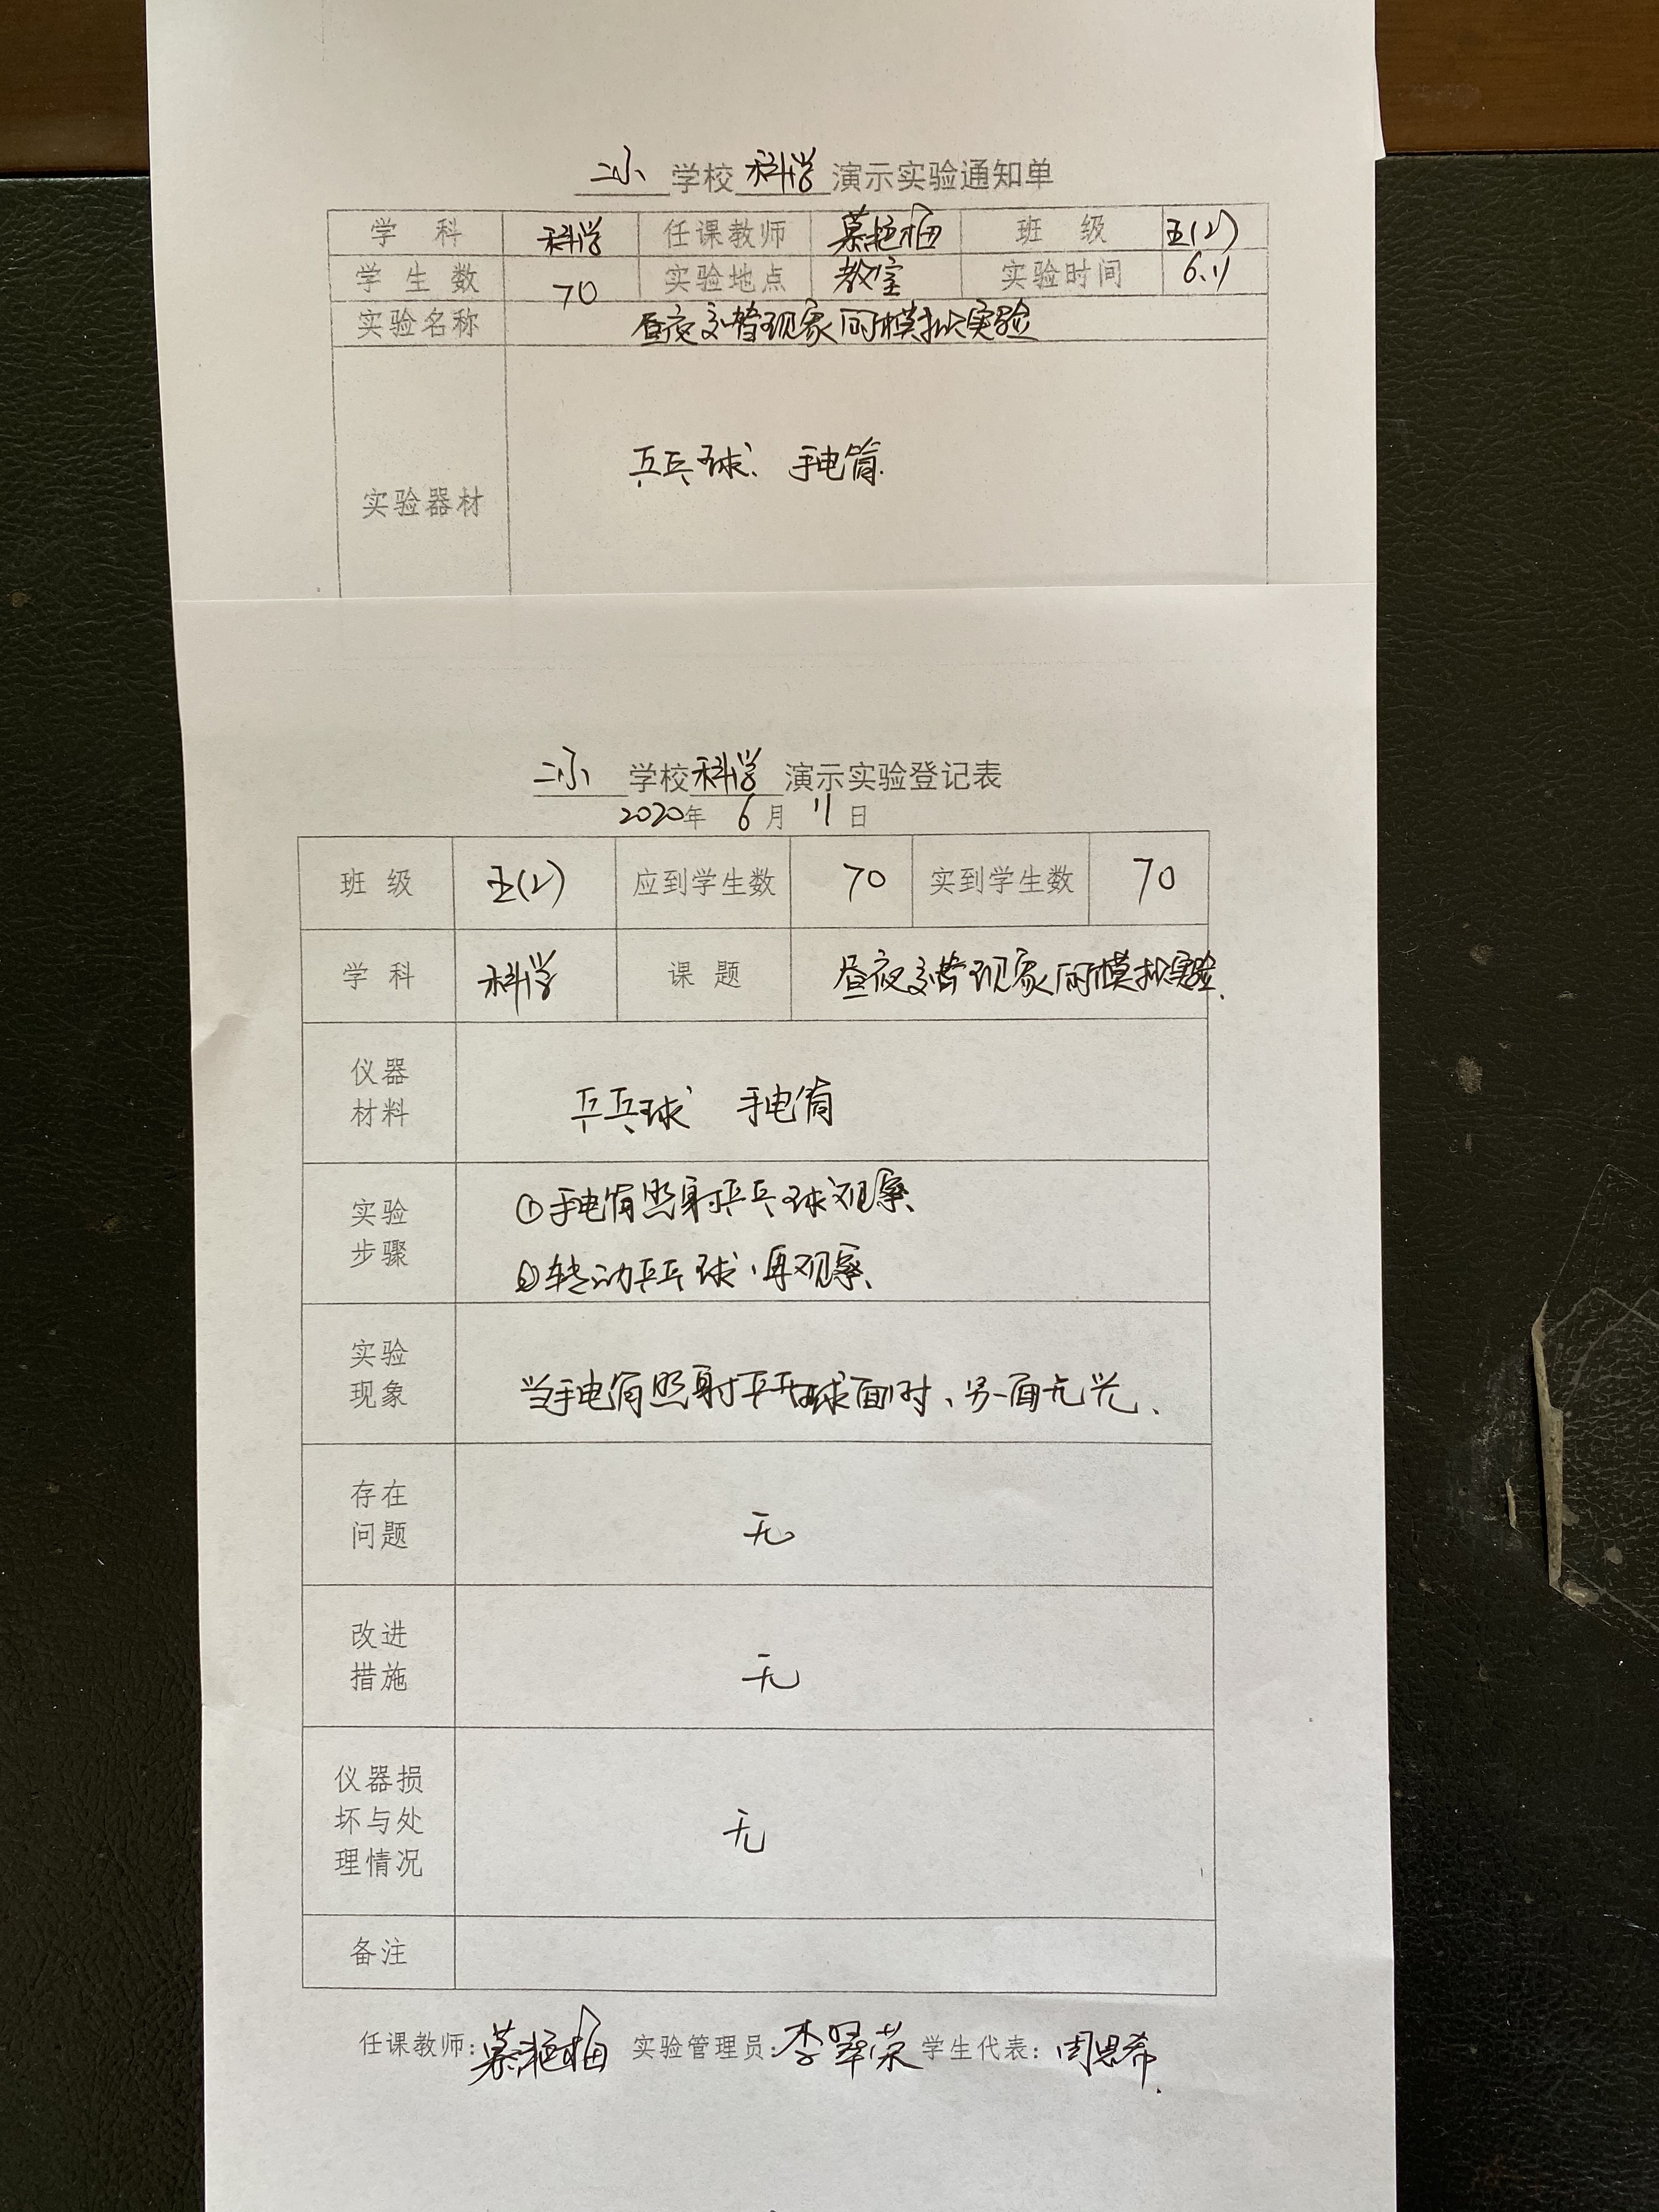 二小 学校 科学 演示实验通知单
学 科 科学 任课教师 慕艳梅 班 级 五(2)
学 生 数 70 实验地点 教室 实验时间 6.11
实验名称 昼夜交替现象的模拟实验
实验器材 乒乓球、手电筒.
二小 学校 科学 演示实验登记表
2020年 6月 11日
班 级 五(2) 应到学生数 70 实到学生数 70
学 科 科学 课 题 昼夜交替现象的模拟实验.
仪器
材料
乒乓球 手电筒
实验
步骤
①手电筒照射乒乓球观察、
②转动乒乓球、再观察、
实验
现象
当手电筒照射乒乓球面时、另一面无光、
存在
问题
无
改进
措施
无
仪器损
坏与处
理情况
无
备注
任课教师: 慕艳梅 实验管理员: 李翠荣 学生代表: 周思希.